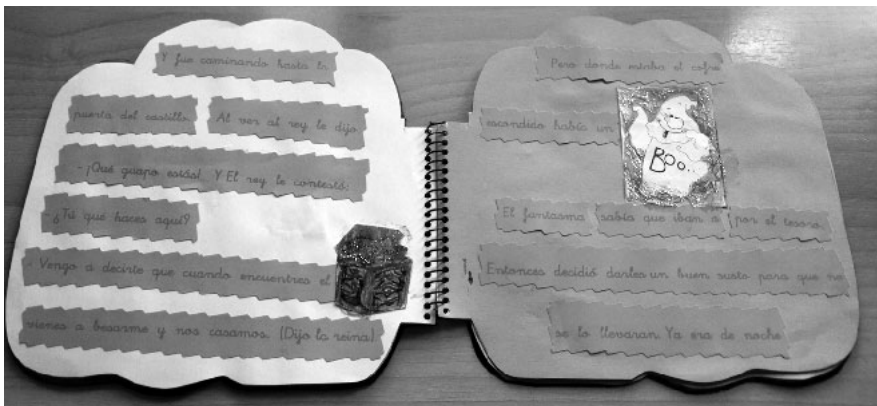 Y fue caminando hasta la
puerta del castillo. Al ver al rey le dijo
- ¡Qué guapo estás!. Y El rey le contestó:
- ¿Tú que haces aquí?
- Vengo a decirte que cuando encuentres el
vienes a besarme y nos casamos. (Dijo la reina)
Pero donde estaba el cofre
escondido había un
Boo..
El fantasma sabía que iban a por el tesoro.
Entonces decidió darles un buen susto para que no
se lo llevaran. Ya era de noche